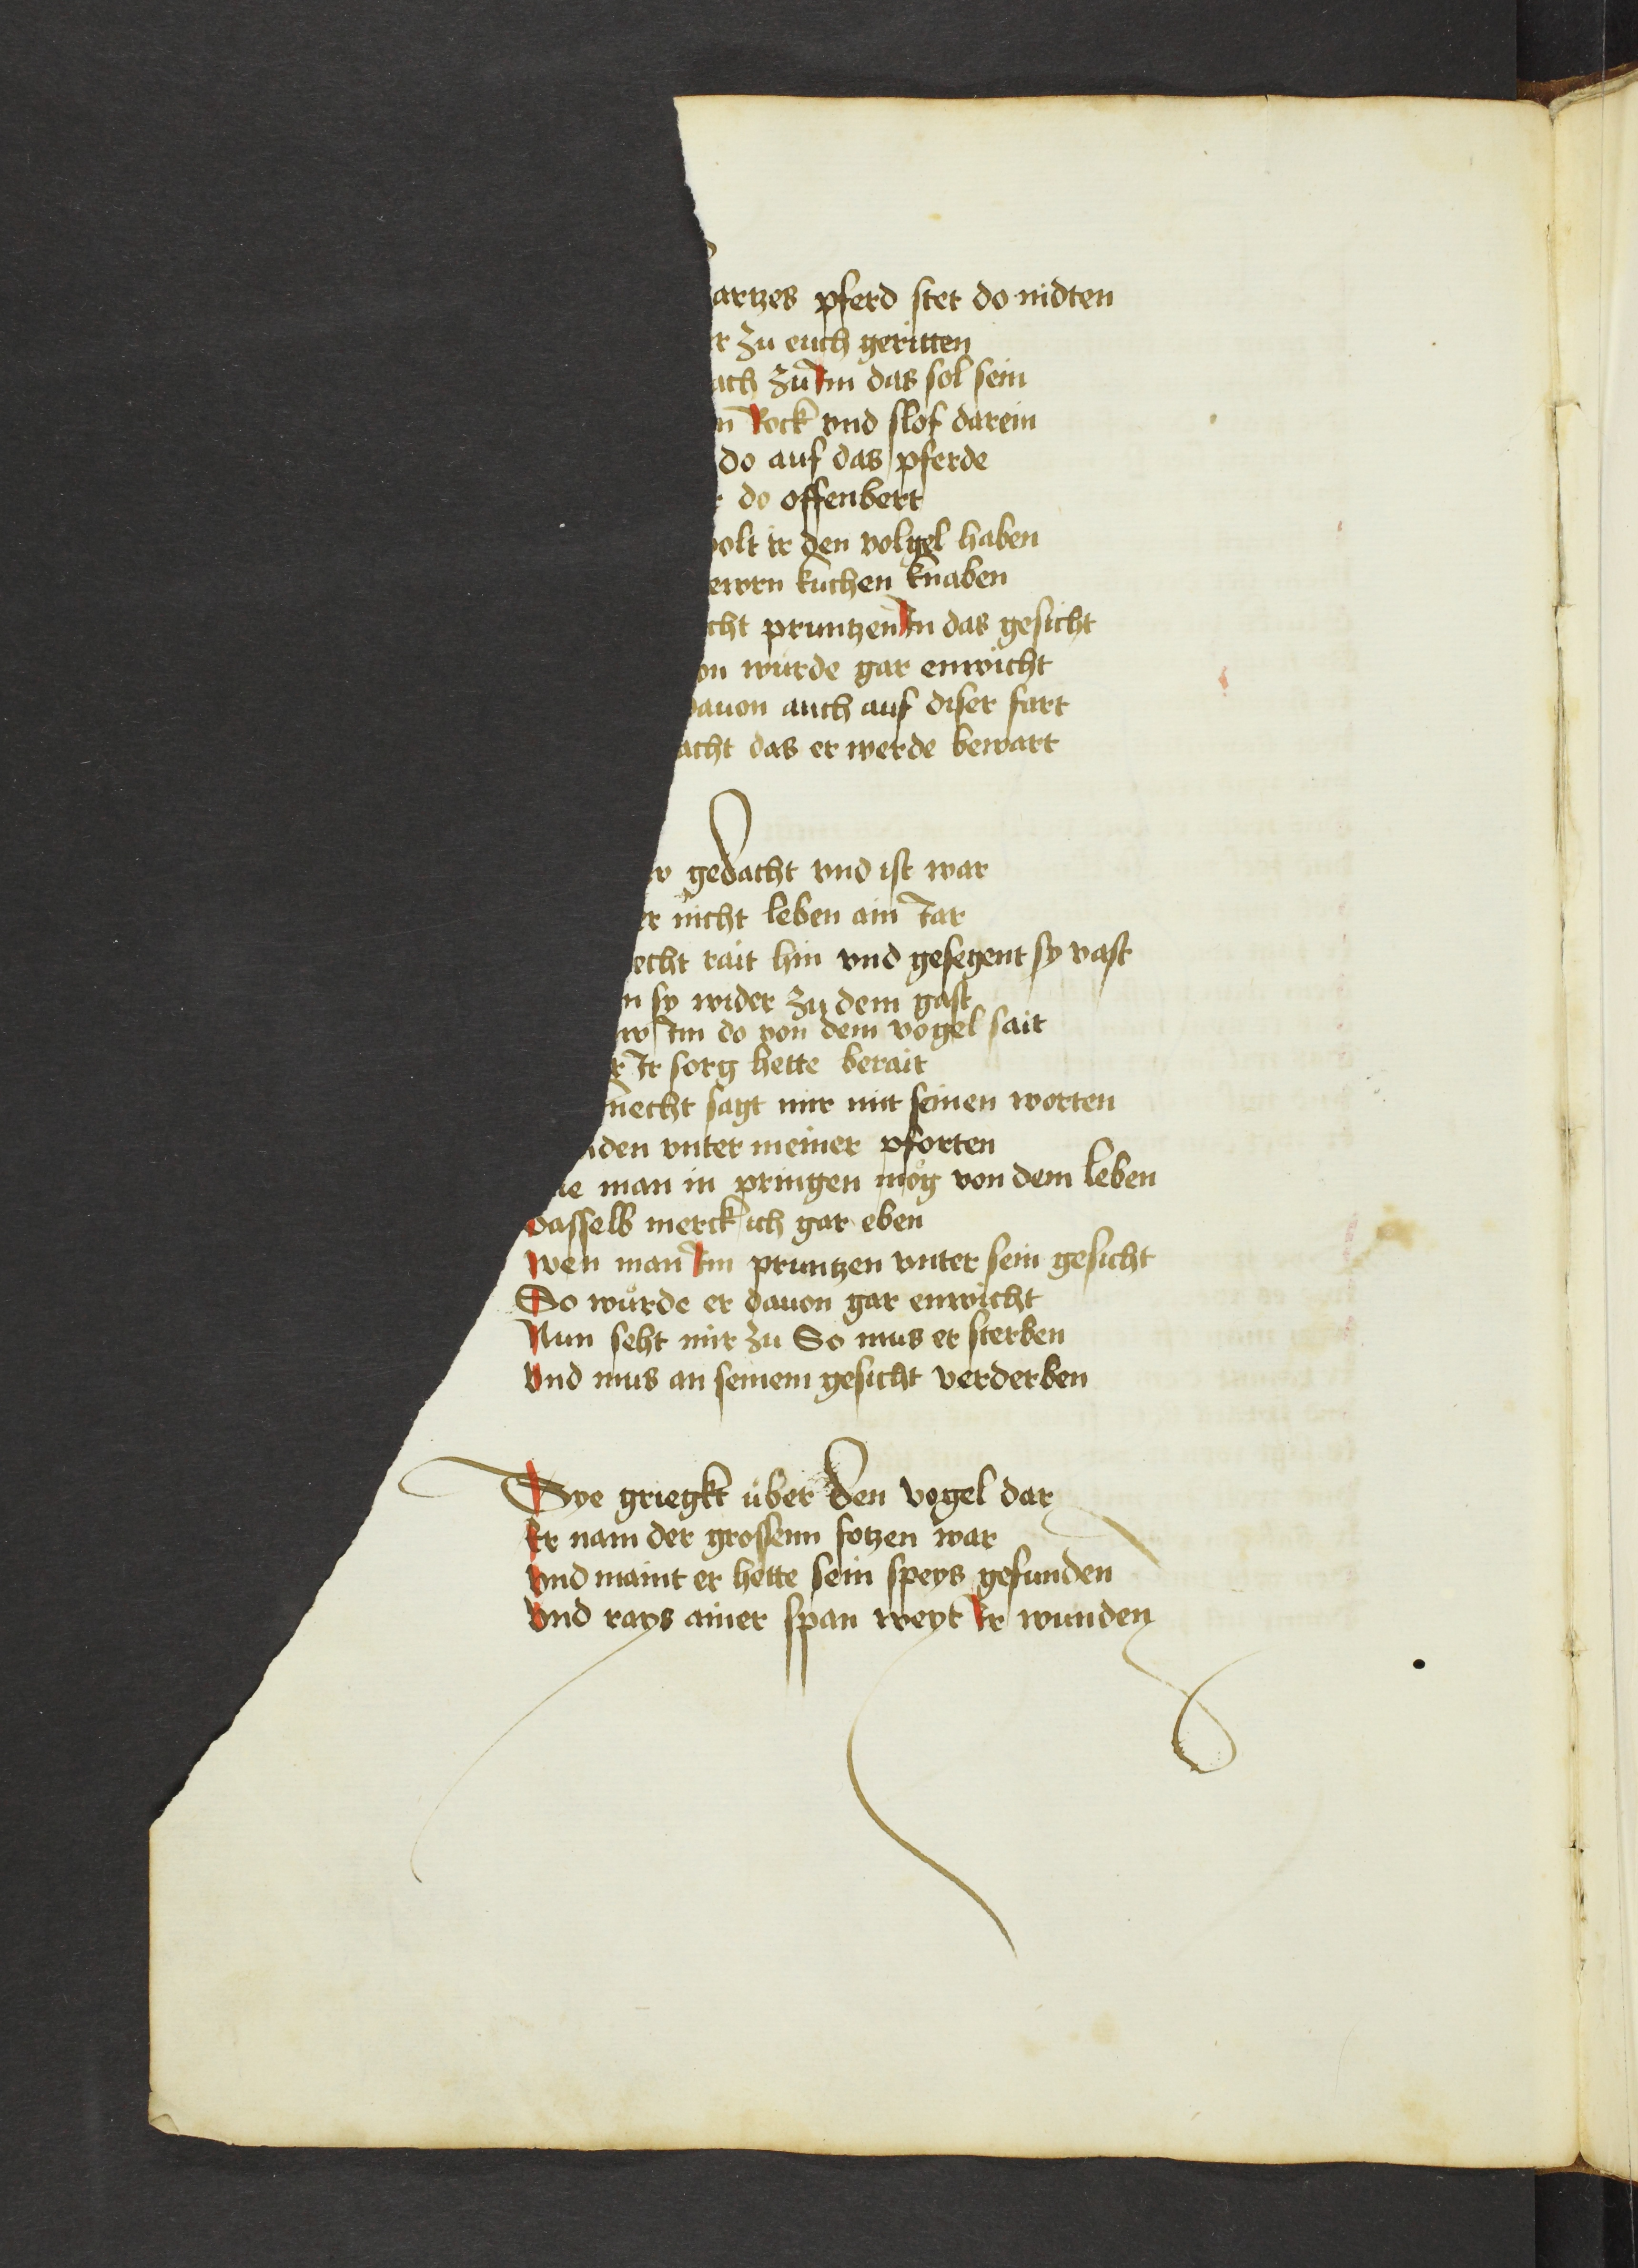 artzes pferd stet do nidten
r zu euch geritten
ach zu Im das sol sein
n Rock vnd slof darein
do auf das pferde
do offenbert
olt ir den volgel haben
ewrn kuchen knaben
cht pruntzen In das gesicht
on wurde gar enwicht
dauon auch auf diser fart
acht das er werde bewart
w gedacht vnd ist war
er nicht leben ain Jar
echt rait hin vnd gesegent sy vast
n sy wider zu dem gast
w Im do von dem vogel sait
r Ir sorg hette berait
necht sagt mir mit seinen worten
nden vnter meiner pforten
ie man in pringen mög von dem leben
Dasselb merck ich gar eben
Wen man Im pruntzen vnter sein gesicht
So wůrde er dauon gar enwicht
Nun seht mir zu So mus er sterben
Vnd mus an seinem gesicht verderben
Sye griegkt über den vogel dar
Er nam der grossenn fotzen war
Vnd maint er hette sein speys gefunden
Vnd rays ainer span weyt Ir wunden